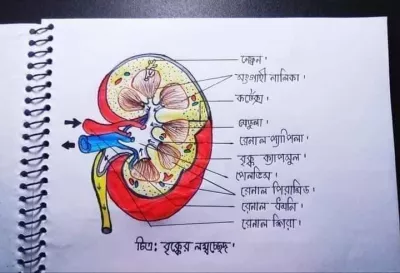 নেফ্রন।
সংগ্রাহী নালিকা।
কর্টেক্স।
মেডুলা।
রেনাল প্যাপিলা।
বৃক্ক ক্যাপসুল।
পেলভিস।
রেনাল পিরামিড।
রেনাল ধমনি।
রেনাল শিরা।
চিত্র: বৃক্কের লম্বচ্ছেদ।